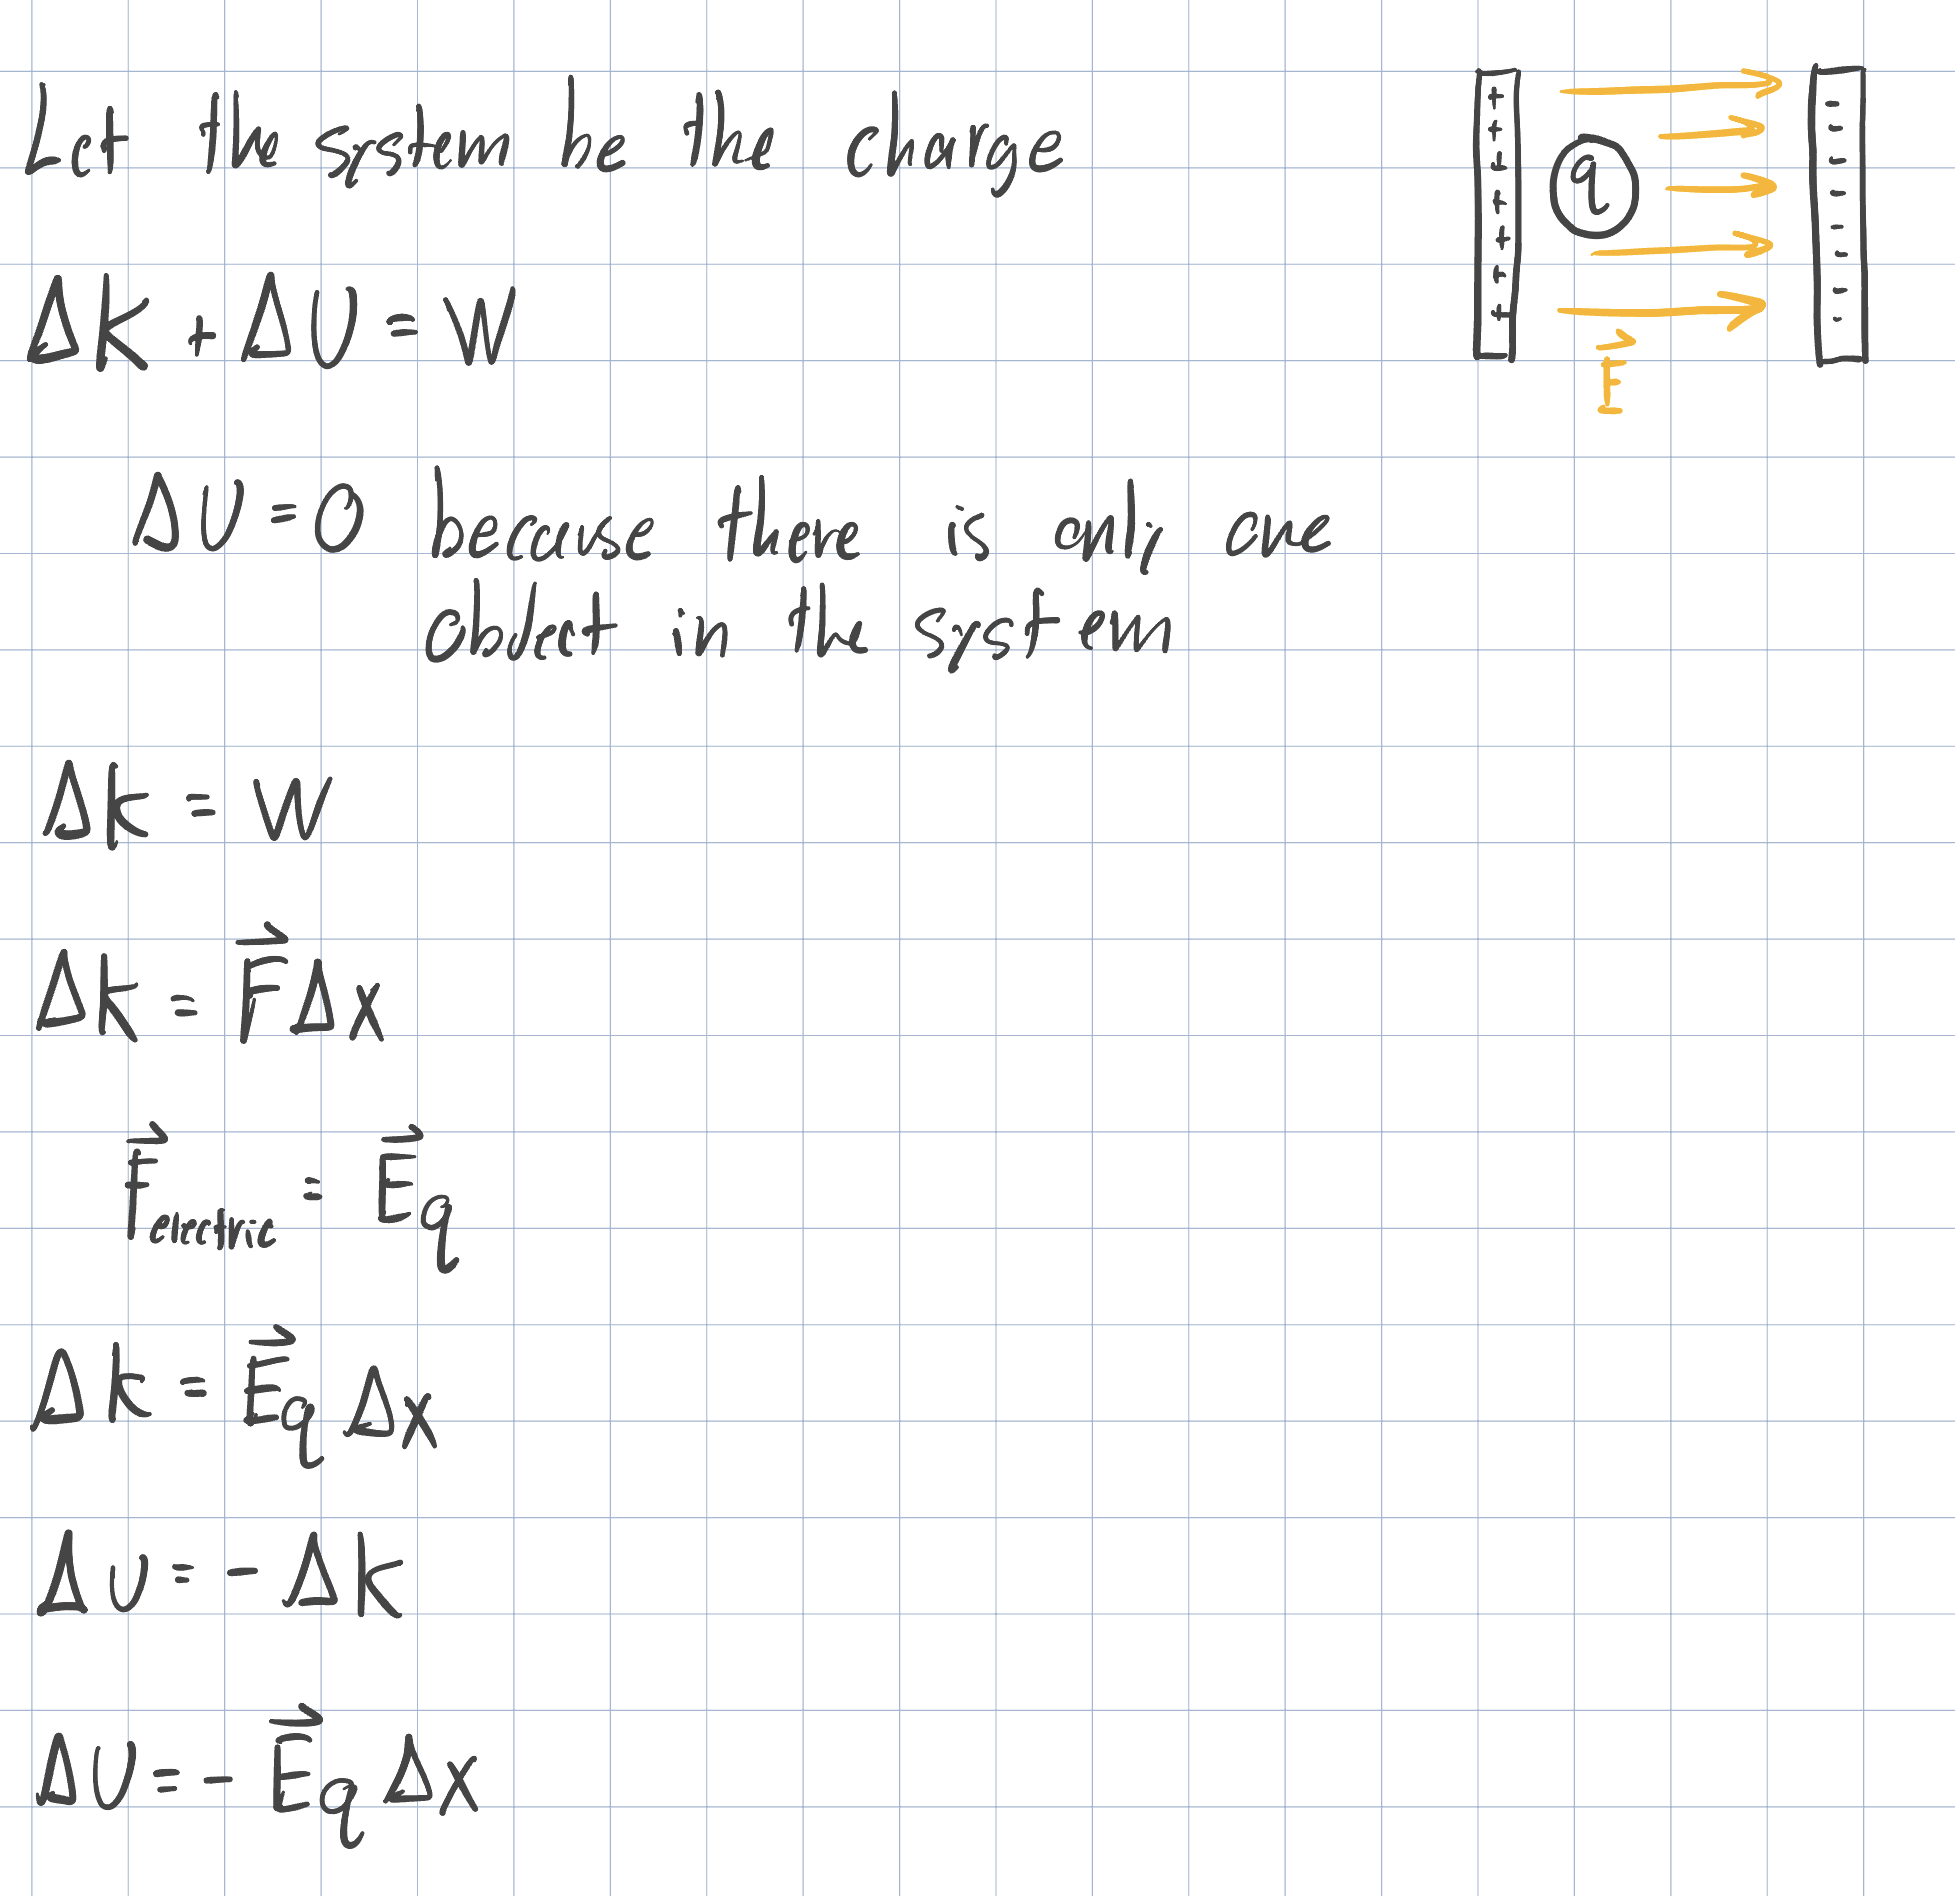 Let the system be the charge
+ + + + + + +
q
- - - - - - - -
E⃗
ΔK + ΔU = W
ΔU = 0 because there is only one
object in the system
Δk = W
Δk = F⃗Δx
F⃗electric = E⃗q
Δk = E⃗qΔx
ΔU = -Δk
ΔU = -E⃗qΔx